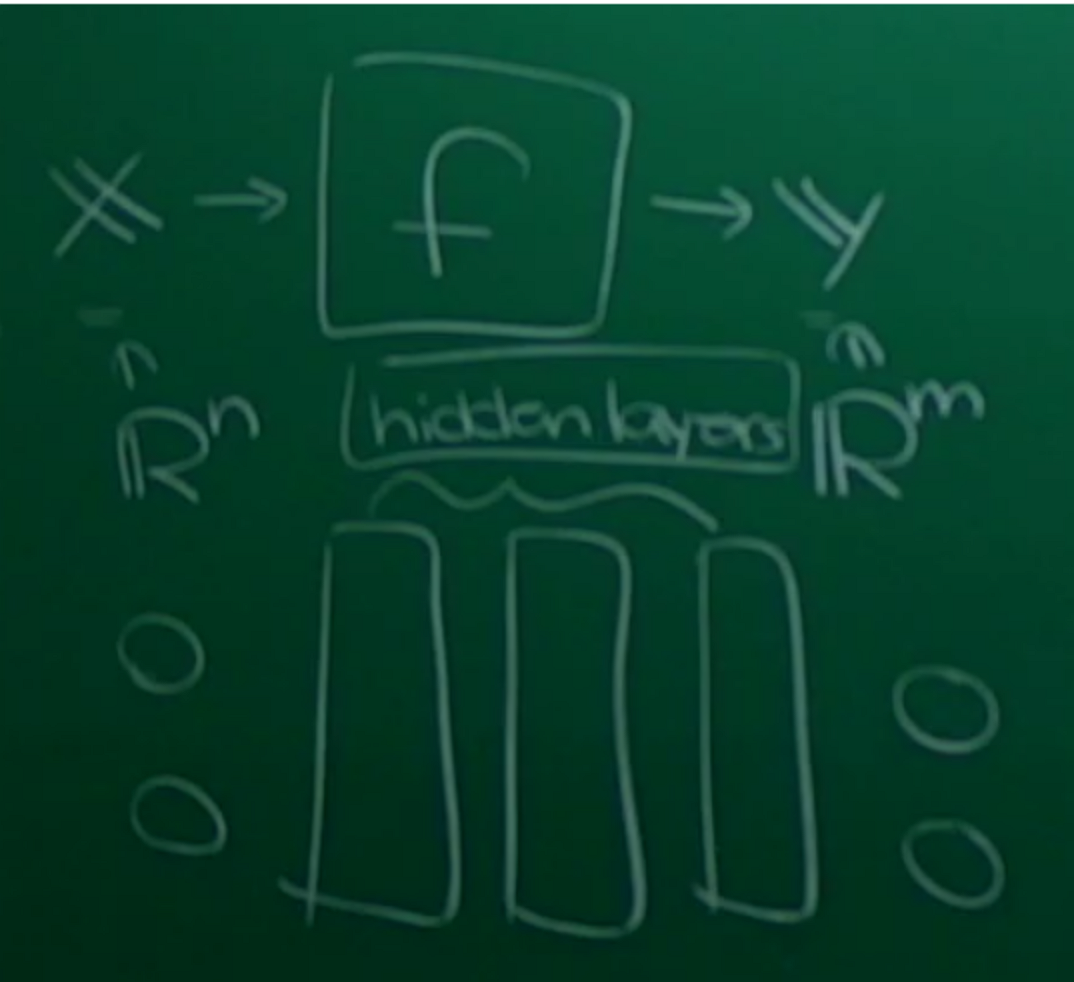 𝕏 → f → 𝕐
ℝⁿ hidden layers ℝᵐ